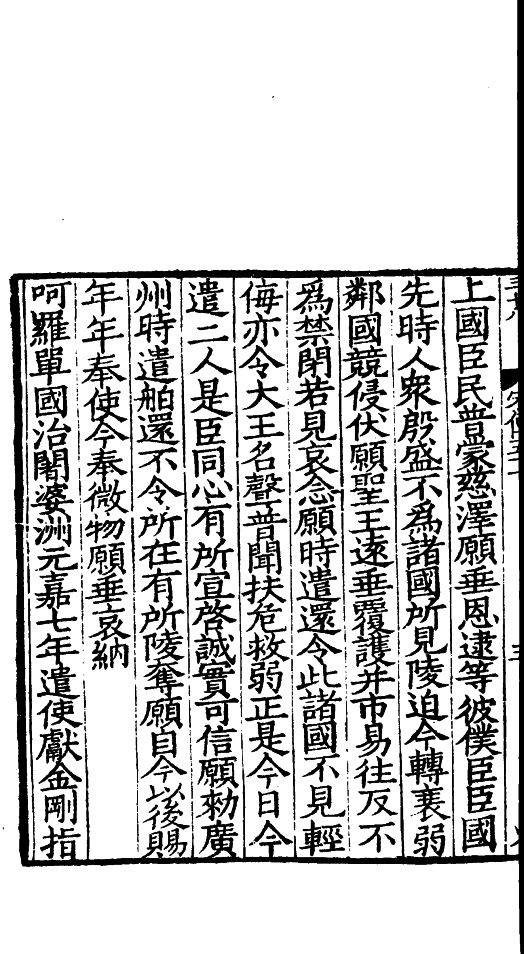 上國臣民普蒙慈澤願垂恩逮等彼僕臣臣國
先時人衆殷盛不爲諸國所見陵迫今轉衰弱
鄰國競侵伏願聖王遠垂覆護并市易往反不
爲禁閉若見哀念願時遣還令此諸國不見輕
侮亦令大王名聲普聞扶危救弱正是今日今
遣二人是臣同心有所宣啓誠實可信願勑廣
州時遣舶還不令所在有所陵奪願自今以後賜
年年奉使今奉微物願垂哀納
呵羅單國治闍婆洲元嘉七年遣使獻金剛指